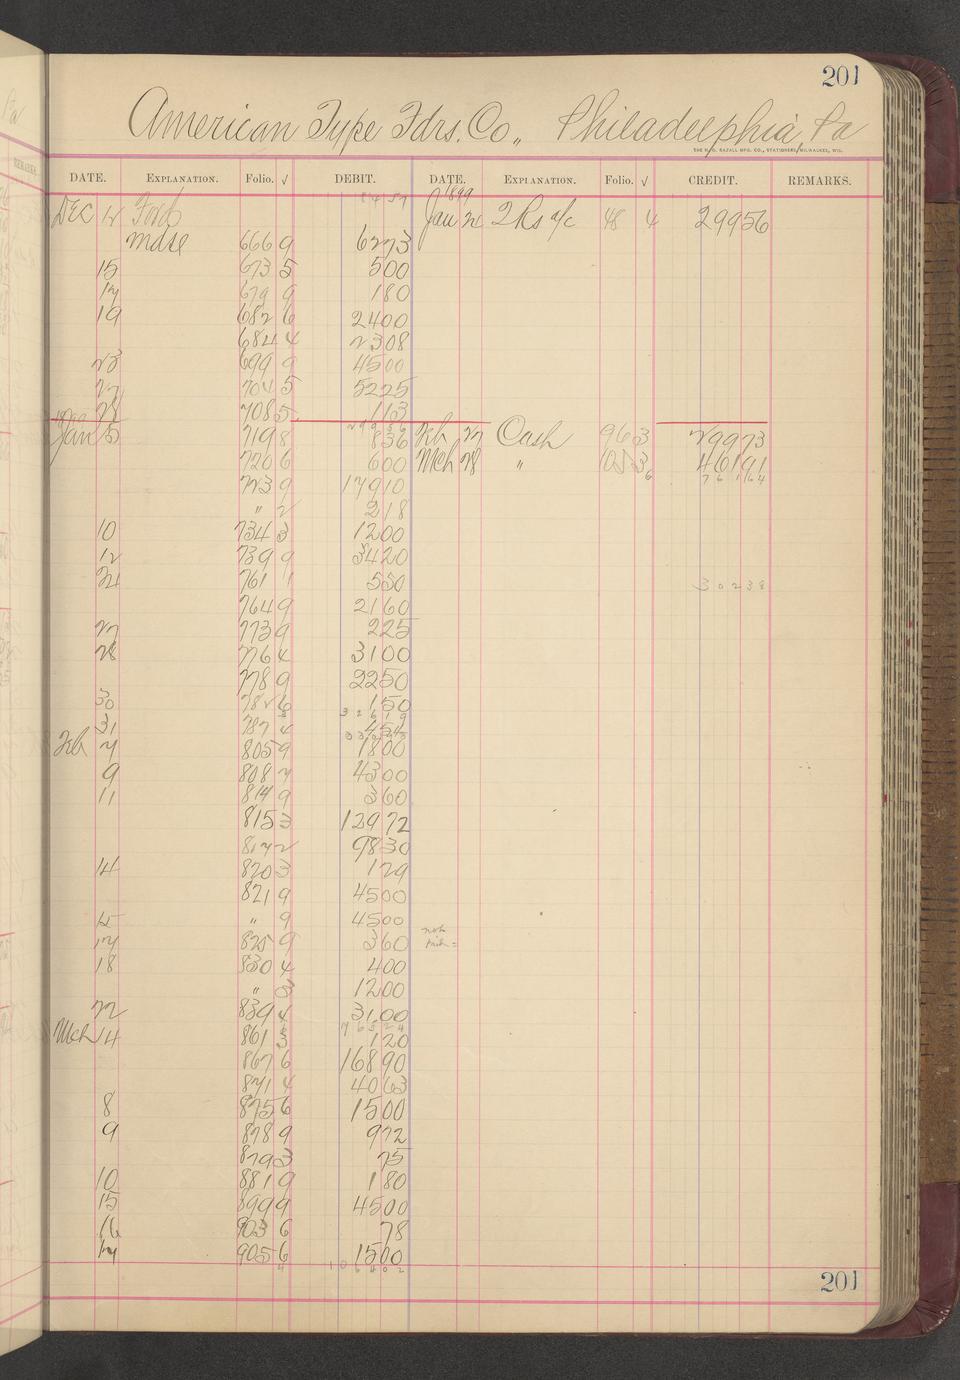 201
American Type Fdrs. Co., Philadelphia, Pa
THE H. G. RAZALL MFG. CO., STATIONERS, MILWAUKEE, WIS.
DATE. EXPLANATION. Folio. √ DEBIT. DATE. EXPLANATION. Folio. √ CREDIT. REMARKS.
1899
Dec 12 Ford Jan 20 2Rs a/c 48 4 29956
Mdse 666 9 6273
15 673 5 500
17 679 9 180
19 682 6 2400
684 4 2308
23 699 9 4500
27 704 5 5225
28 708 5 113
Jan 5 719 8 836 Feb 27 Cash 96 3 29973
720 6 600 Mch 28 " 105 3 46191
723 9 17910 76164
" 2 218
10 734 3 1200
12 739 9 3420
24 761 1 550 30238
764 9 2160
27 773 9 225
28 776 4 3100
778 9 2250
30 782 6 150
32619
31 787 4 454
Feb 7 805 9 1800
9 808 7 4300
11 814 9 360
815 3 12972
817 2 9830
14 820 3 129
821 9 4500
15 " 9 4500
17 825 9 360
18 830 4 400
" 3 1200
22 839 4 3100
76524
Mch 4 861 3 120
867 6 16890
871 4 4063
8 875 6 1500
9 878 9 972
879 3 75
10 881 9 180
15 899 9 4500
16 903 6 78
17 905 6 1500
106402
201